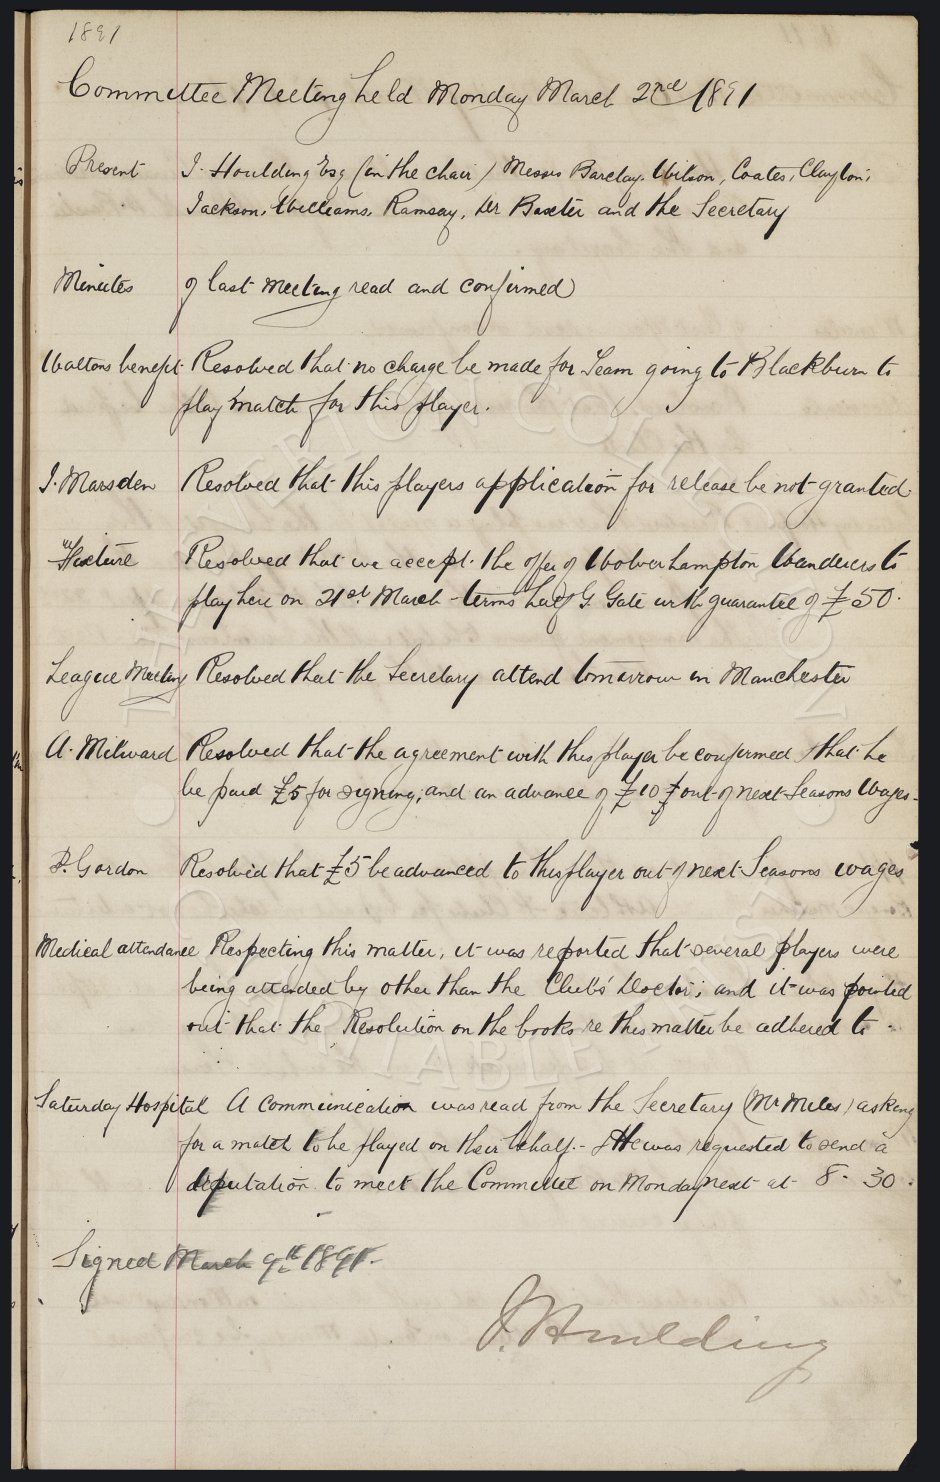 1891
Committee Meeting held Monday March 2nd 1891
Present J. Houlding Esq (in the chair) Messrs Barclay, Wilson, Coates, Clayton,
Jackson, Williams, Ramsay, Dr Baxter and the Secretary
Minutes of last meeting read and confirmed
Waltons benefit Resolved that no charge be made for Team going to Blackburn to
play match for this player.
J. Marsden Resolved that this players application for release be not granted
Fixture Resolved that we accept the offer of Wolverhampton Wanderers to
play here on 21st March - terms half G. Gate with guarantee of £50.
League Meeting Resolved that the Secretary attend tomorrow in Manchester
A. Milward Resolved that the agreement with this player be confirmed & that he
be paid £5 for signing, and an advance of £10 out of next Seasons Wages -
P. Gordon Resolved that £5 be advanced to this player out of next Seasons wages
Medical attendance Respecting this matter, it was reported that several players were
being attended by other than the Club's Doctor; and it was pointed
out that the Resolution on the books re this matter be adhered to -
Saturday Hospital A communication was read from the Secretary (Mr Miles) asking
for a match to be played on their behalf. - & He was requested to send a
deputation to meet the Committee on Monday next at 8-30.
Signed March 9th 1891 -
J. Houlding
EVERTON COLLECTION
CHARITABLE TRUST